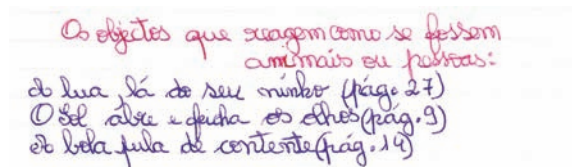 Os objectos que reagem como se fossem
animais ou pessoas:
A lua, lá do seu ninho (pág. 27)
O Sol abre e fecha os olhos (pág. 9)
A bola pula de contente (pág. 14)